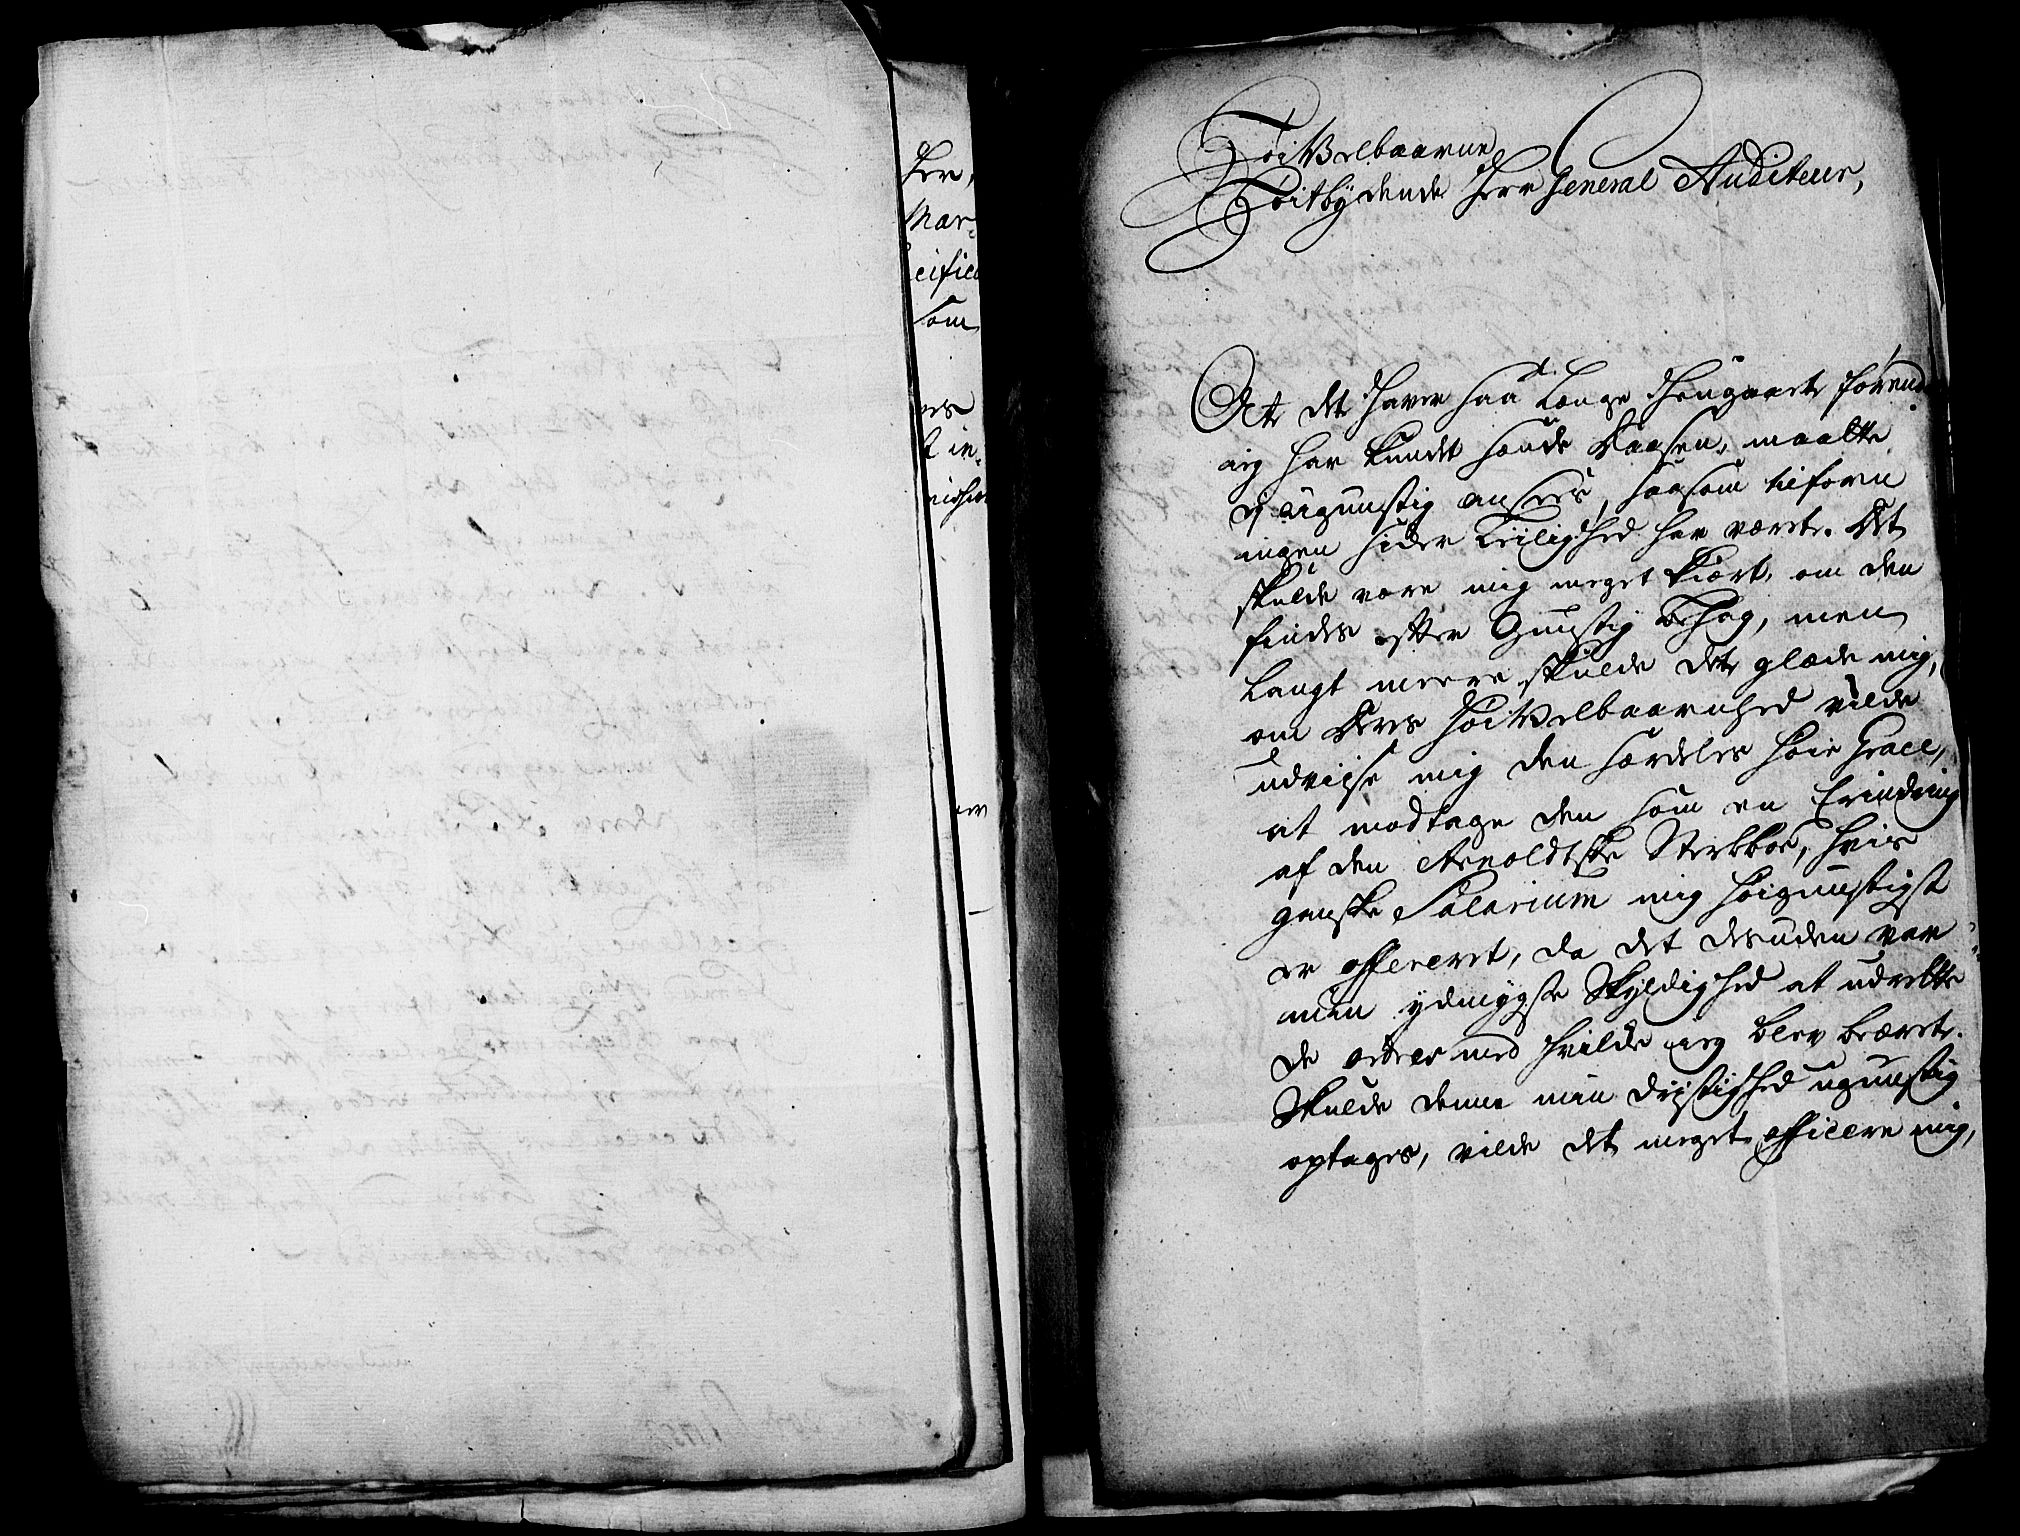 Her,
Mar-
cifice
som
in-
er
HöiWelbaarne,
Höitbydende Herr General Auditeur,
At det haver saa længe Hengaaet, förend
ieg har kundet sende Daasen, maatte
ej ugunstig ansees, saasom tilforn
ingen sider Leilighed har været. Det
skulde være mig meget kiært, om den
findes efter Gunstig Behag, men
Langt meere skulde det glæde mig,
om Deres HöiWelbaarenhed vilde
udviise mig den særdeles höie Grace,
at modtage den som en Erindring
af den Arnoldtske Sterkboe, hvis
ganske Salarium mig höigunstigst
er offereret, da det desuden var
min ydmygste Skyldighed at udrette
de ordres med hvilke ieg blev beæret.
Skulde denne min Dristighed ugunstig
optages, vilde det meget afficere mig,